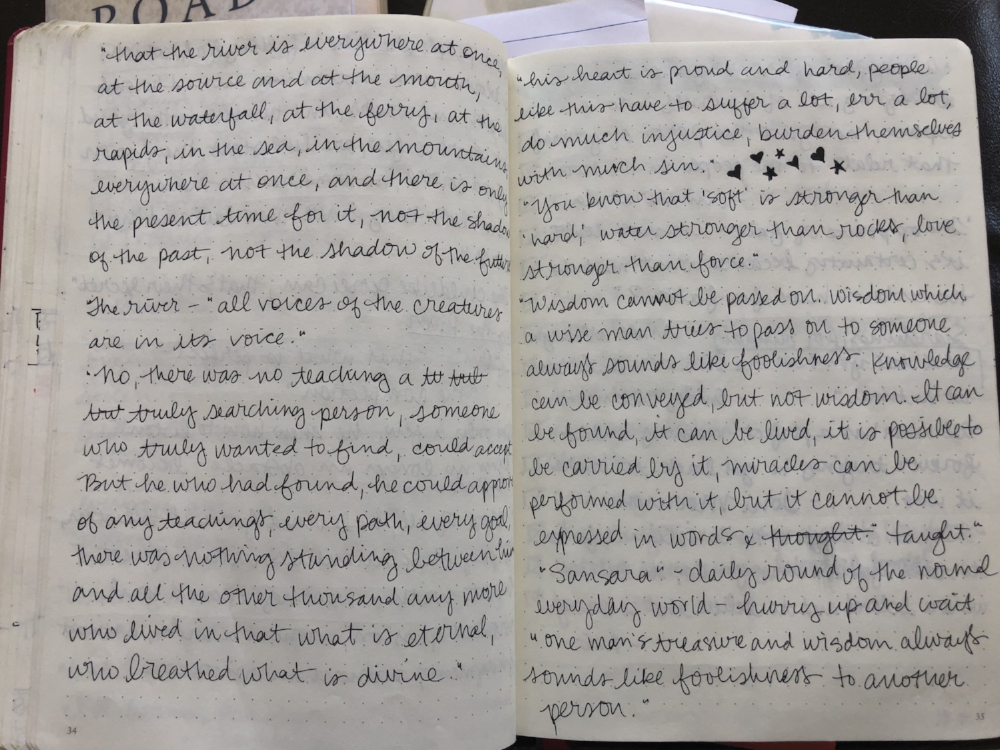 ROAD
"that the river is everywhere at once,
at the source and at the mouth,
at the waterfall, at the ferry, at the
rapids, in the sea, in the mountains,
everywhere at once, and there is only
the present time for it, not the shadow
of the past, not the shadow of the future
The river - "all voices of the creatures
are in its voice."
"No, there was no teaching a tr tut
trt truly searching person, someone
who truly wanted to find, could accept.
But he who had found, he could approv
of any teachings, every path, every goal,
there was nothing standing between him
and all the other thousand any more
who lived in that what is eternal,
who breathed what is divine."
34
"his heart is proud and hard, people
like this have to suffer a lot, err a lot,
do much injustice, burden themselves
with much sin."
"You know that 'soft' is stronger than
'hard,' water stronger than rocks, love
stronger than force."
"Wisdom cannot be passed on. Wisdom which
a wise man tries to pass on to someone
always sounds like foolishness. Knowledge
can be conveyed, but not wisdom. It can
be found, it can be lived, it is possible to
be carried by it, miracles can be
performed with it, but it cannot be
expressed in words & thought." taught."
"Sansara" - daily round of the normal
everyday world - hurry up and wait
"one man's treasure and wisdom always
sounds like foolishness to another
person."
35